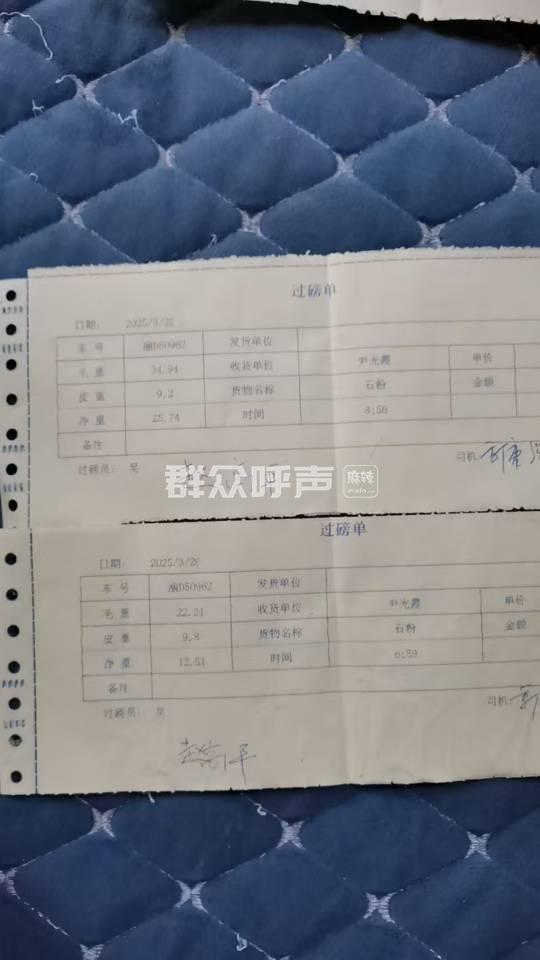 过磅单
日期: 2025/3/22
车号 渝D50962 发货单位
毛重 34.94 收货单位 尹光霞 单价
皮重 9.2 货物名称 石粉 金额
净重 25.74 时间 8:56
备注
过磅员: 吴 司机:
群众呼声 麻辣
过磅单
日期: 2025/3/26
车号 渝D50962 发货单位
毛重 22.31 收货单位 尹光霞 单价
皮重 9.8 货物名称 石粉 金额
净重 12.51 时间 6:59
备注
过磅员: 吴 司机: